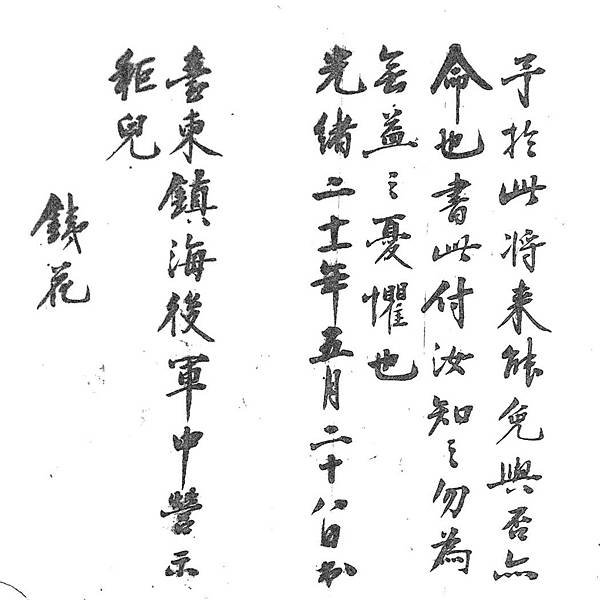 予於此将来能免與否亦
命也書此付汝知之勿為
無益之憂懼也
光緒二十一年五月二十八日書
臺東鎮海後軍中營示
秬兒
銕花